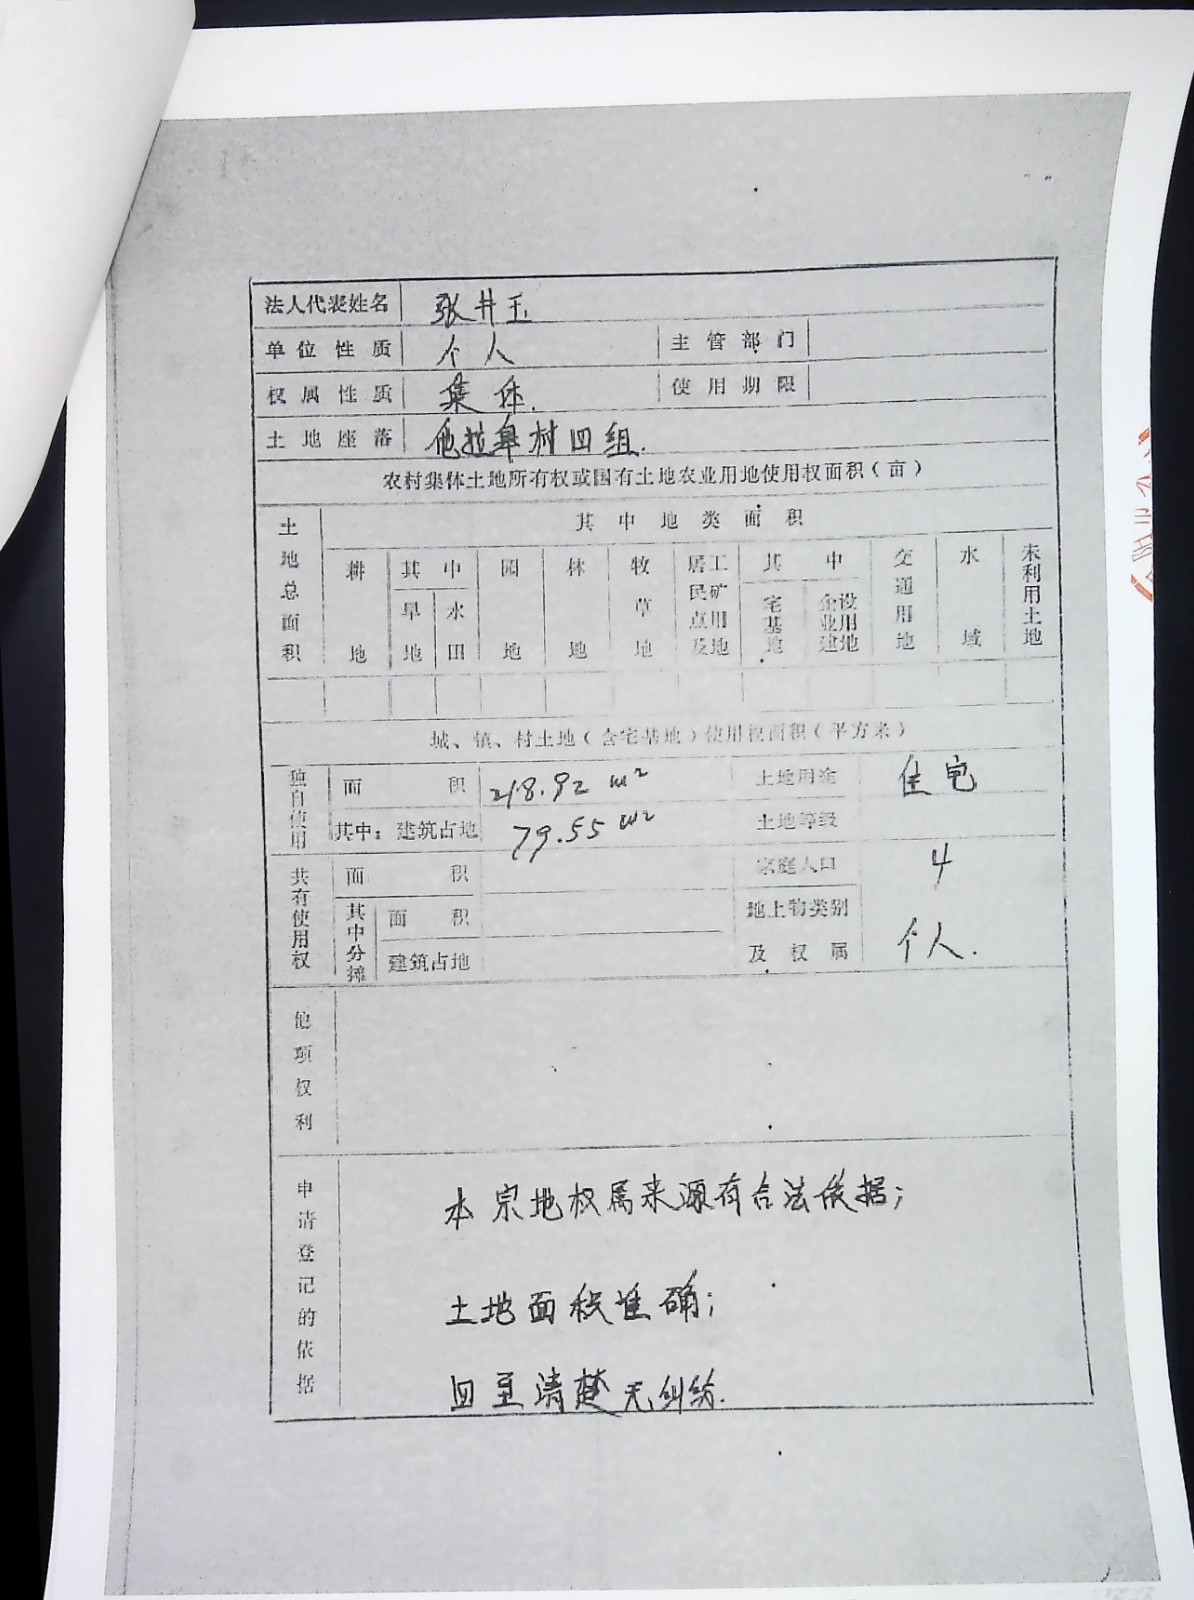 法人代表姓名 张井玉
单位性质 个人 主管部门
权属性质 集体. 使用期限
土地座落 他拉皋村四组.
农村集体土地所有权或国有土地农业用地使用权面积(亩)
土地总面积 其中地类面积
耕地 其中 旱地 水田 园地 林地 牧草地 居民点及工矿用地 其中 宅基地 企业建设用地 交通用地 水域 未利用土地
城、镇、村土地(含宅基地)使用权面积(平方米)
独自使用 面积 218.92 m² 土地用途 住宅
其中:建筑占地 79.55 m² 土地等级
共有使用权 面积 家庭人口 4
其中分摊 面积 地上物类别
建筑占地 及权属 个人.
他项权利
申请登记的依据
本宗地权属来源有合法依据;
土地面积准确;
四至清楚无纠纷.